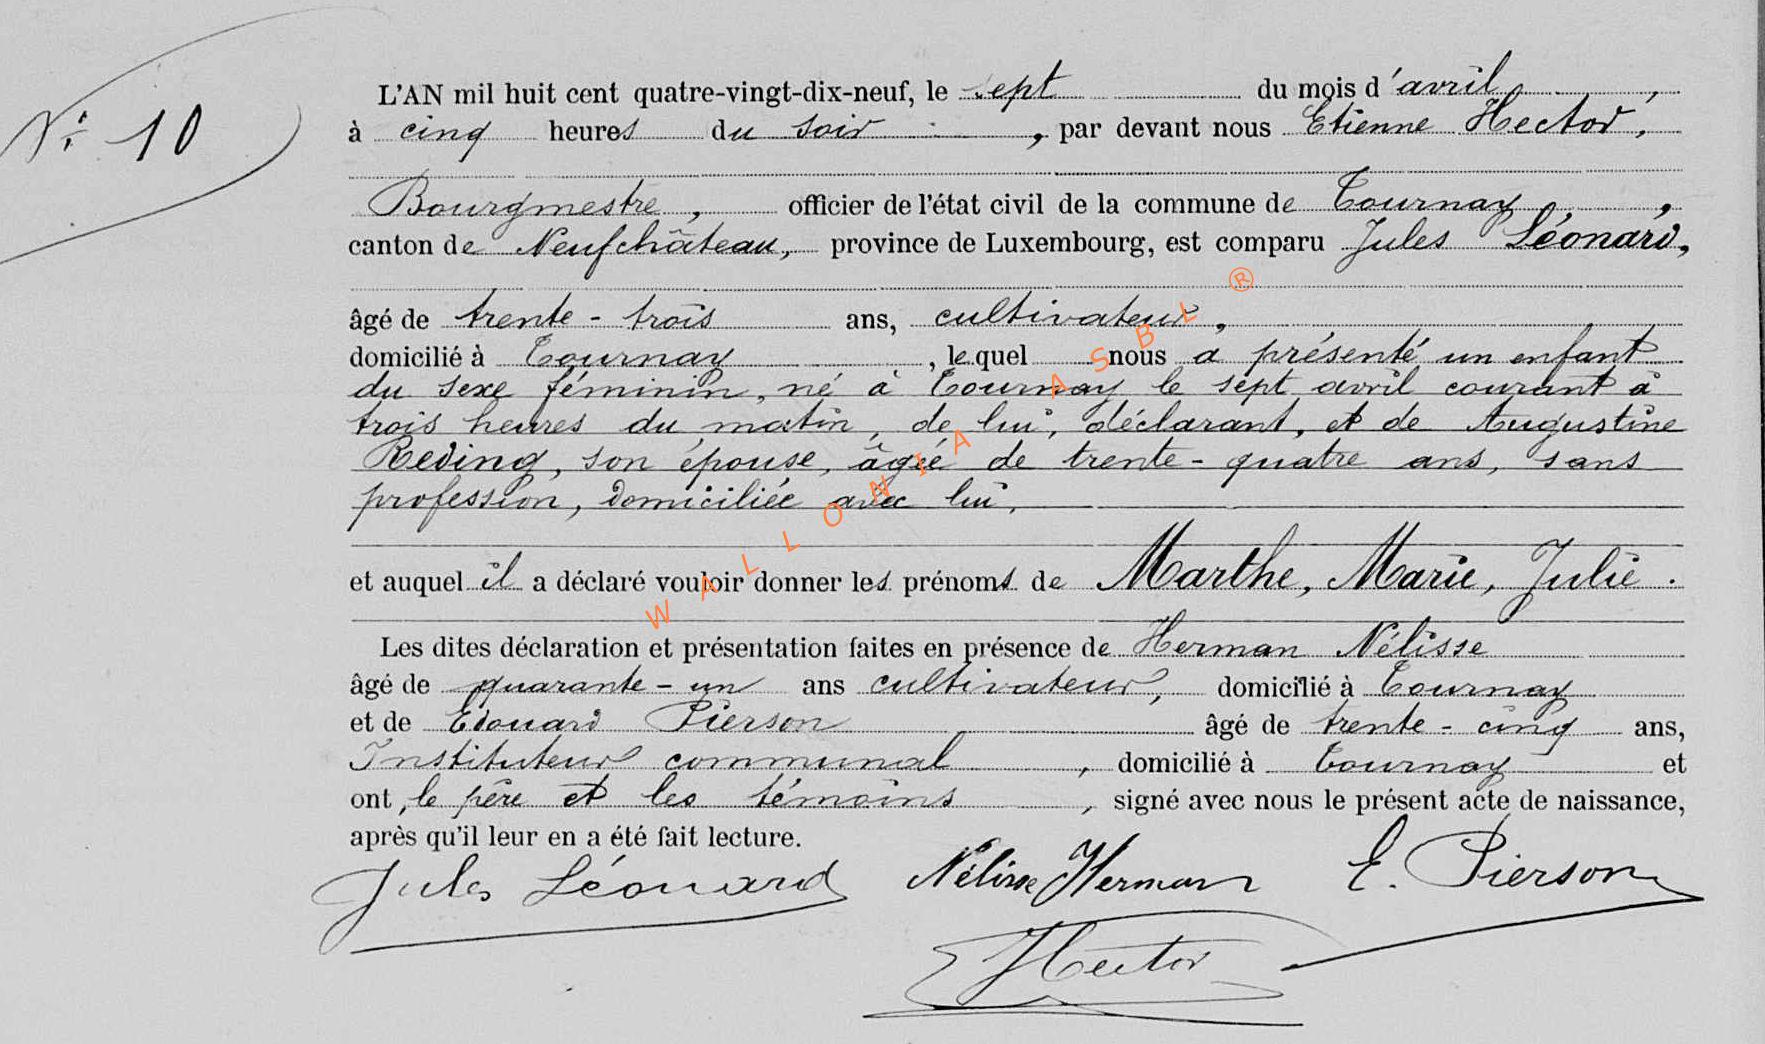 N° 10
L'AN mil huit cent quatre-vingt-dix-neuf, le sept du mois d'avril,
à cinq heures du soir, par devant nous Etienne Hector,
Bourgmestre, officier de l'état civil de la commune de Tournay,
canton de Neufchâteau, province de Luxembourg, est comparu Jules Léonard,
âgé de trente-trois ans, cultivateur,
domicilié à Tournay, lequel nous a présenté un enfant
du sexe féminin, né à Tournay le sept avril courant à
trois heures du matin, de lui, déclarant, et de Augustine
Reding, son épouse, âgée de trente-quatre ans, sans
profession, domiciliée avec lui,
et auquel il a déclaré vouloir donner les prénoms de Marthe, Marie, Julie.
Les dites déclaration et présentation faites en présence de Herman Nélisse
âgé de quarante-un ans cultivateur, domicilié à Tournay
et de Edouard Pierson âgé de trente-cinq ans,
Instituteur communal, domicilié à Tournay et
ont, le père et les témoins, signé avec nous le présent acte de naissance,
après qu'il leur en a été fait lecture.
Jules Léonard Nélisse Herman E. Pierson
Hector
WALLONIA ASBL ®